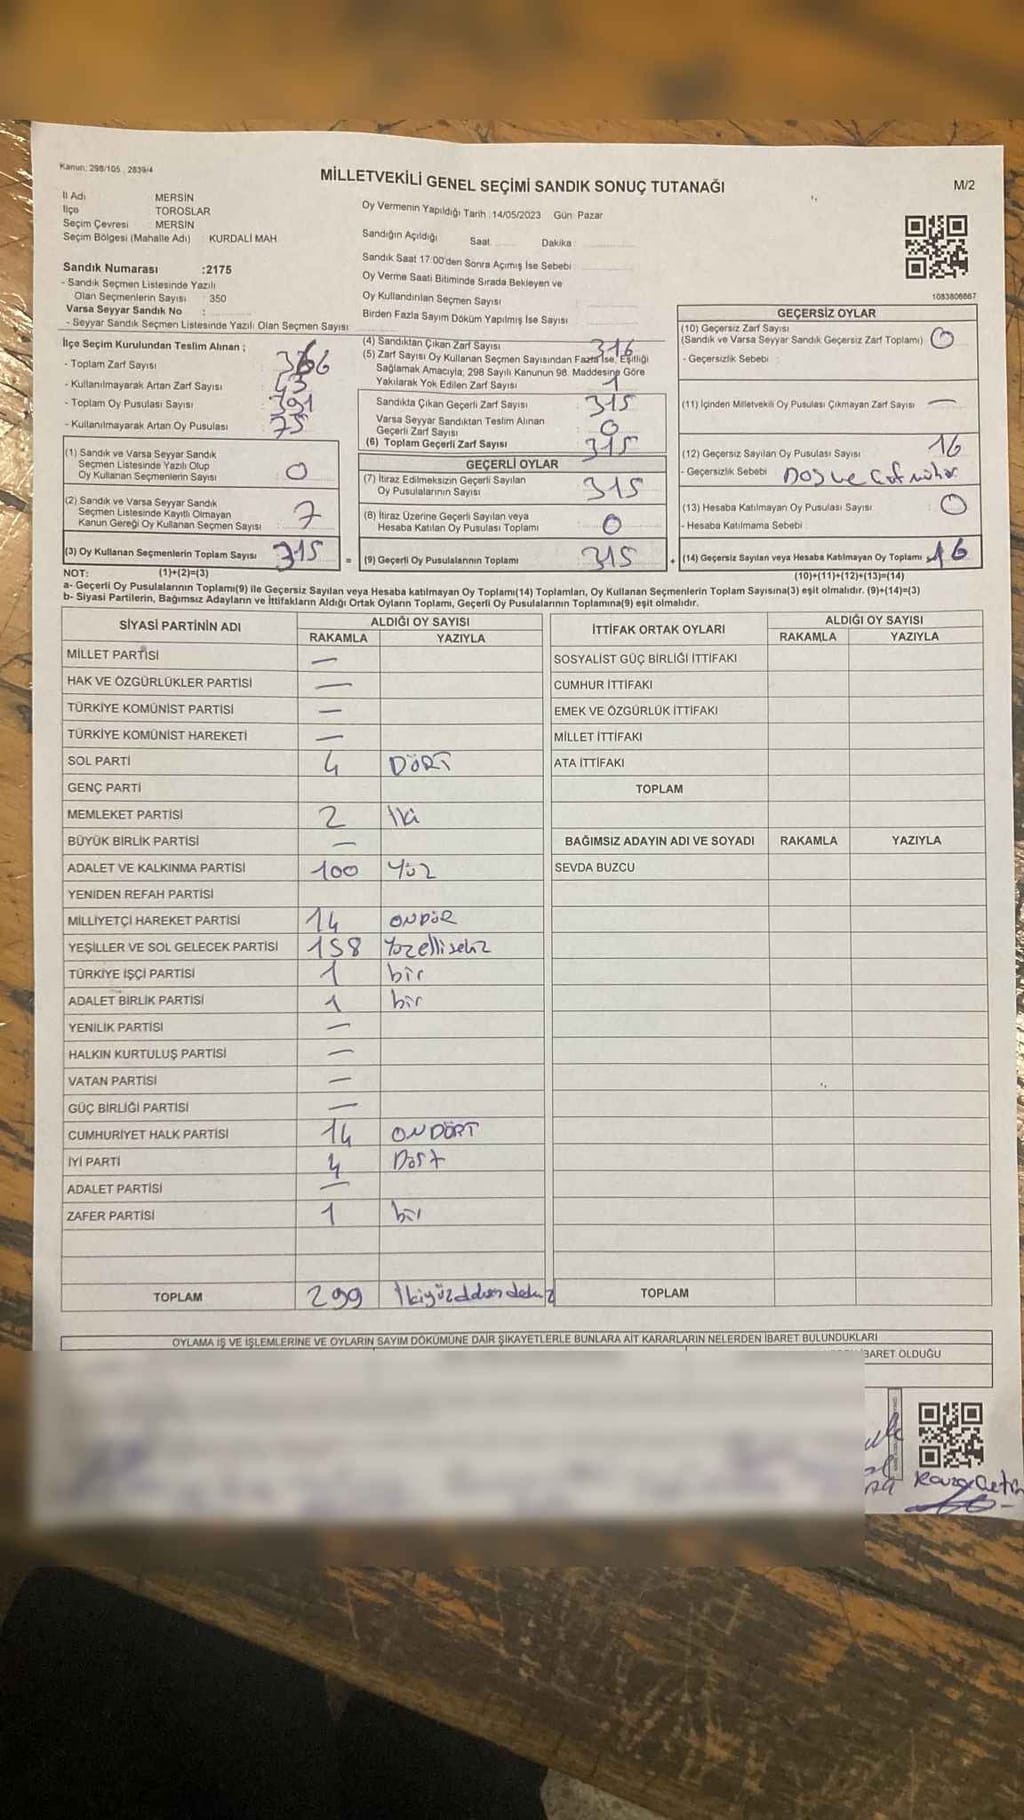 Kanun: 298/105, 2839/4
MİLLETVEKİLİ GENEL SEÇİMİ SANDIK SONUÇ TUTANAĞI
M/2
İl Adı MERSİN
İlçe TOROSLAR
Seçim Çevresi : MERSİN
Seçim Bölgesi (Mahalle Adı) : KURDALİ MAH
Sandık Numarası :2175
- Sandık Seçmen Listesinde Yazılı
Olan Seçmenlerin Sayısı : 350
Varsa Seyyar Sandık No :
- Seyyar Sandık Seçmen Listesinde Yazılı Olan Seçmen Sayısı
Oy Vermenin Yapıldığı Tarih : 14/05/2023 Gün: Pazar
Sandığın Açıldığı Saat Dakika :
Sandık Saat 17:00'den Sonra Açımış İse Sebebi
Oy Verme Saati Bitiminde Sırada Bekleyen ve
Oy Kullandırılan Seçmen Sayısı
Birden Fazla Sayım Döküm Yapılmış İse Sayısı
1083806667
İlçe Seçim Kurulundan Teslim Alınan ;
- Toplam Zarf Sayısı
- Kullanılmayarak Artan Zarf Sayısı
- Toplam Oy Pusulası Sayısı : 391
- Kullanılmayarak Artan Oy Pusulası : 75
(1) Sandık ve Varsa Seyyar Sandık
Seçmen Listesinde Yazılı Olup
Oy Kullanan Seçmenlerin Sayısı : 0
(2) Sandık ve Varsa Seyyar Sandık
Seçmen Listesinde Kayıtlı Olmayan
Kanun Gereği Oy Kullanan Seçmen Sayısı : 7
(3) Oy Kullanan Seçmenlerin Toplam Sayısı : 315
(1)+(2)=(3)
(4) Sandıktan Çıkan Zarf Sayısı 316
(5) Zarf Sayısı Oy Kullanan Seçmen Sayısından Fazla İse, Eşitliği
Sağlamak Amacıyla; 298 Sayılı Kanunun 98. Maddesine Göre
Yakılarak Yok Edilen Zarf Sayısı : 1
Sandıkta Çıkan Geçerli Zarf Sayısı : 315
Varsa Seyyar Sandıktan Teslim Alınan
Geçerli Zarf Sayısı : 0
(6) Toplam Geçerli Zarf Sayısı : 315
GEÇERLİ OYLAR
(7) İtiraz Edilmeksizin Geçerli Sayılan
Oy Pusulalarının Sayısı : 315
(8) İtiraz Üzerine Geçerli Sayılan veya
Hesaba Katılan Oy Pusulası Toplamı : 0
= (9) Geçerli Oy Pusulalarının Toplamı : 315
GEÇERSİZ OYLAR
(10) Geçersiz Zarf Sayısı
(Sandık ve Varsa Seyyar Sandık Geçersiz Zarf Toplamı) : 0
- Geçersizlik Sebebi :
(11) İçinden Milletvekili Oy Pusulası Çıkmayan Zarf Sayısı : —
(12) Geçersiz Sayılan Oy Pusulası Sayısı : 16
- Geçersizlik Sebebi :
(13) Hesaba Katılmayan Oy Pusulası Sayısı : 0
- Hesaba Katılmama Sebebi :
+ (14) Geçersiz Sayılan veya Hesaba Katılmayan Oy Toplamı : 16
(10)+(11)+(12)+(13)=(14)
NOT:
a- Geçerli Oy Pusulalarının Toplamı(9) ile Geçersiz Sayılan veya Hesaba katılmayan Oy Toplamı(14) Toplamları, Oy Kullanan Seçmenlerin Toplam Sayısına(3) eşit olmalıdır. (9)+(14)=(3)
b- Siyasi Partilerin, Bağımsız Adayların ve İttifakların Aldığı Ortak Oyların Toplamı, Geçerli Oy Pusulalarının Toplamına(9) eşit olmalıdır.
SİYASİ PARTİNİN ADI ALDIĞI OY SAYISI
RAKAMLA YAZIYLA
MİLLET PARTİSİ —
HAK VE ÖZGÜRLÜKLER PARTİSİ —
TÜRKİYE KOMÜNİST PARTİSİ —
TÜRKİYE KOMÜNİST HAREKETİ —
SOL PARTİ 4 DÖRT
GENÇ PARTİ
MEMLEKET PARTİSİ 2 İki
BÜYÜK BİRLİK PARTİSİ —
ADALET VE KALKINMA PARTİSİ 100 Yüz
YENİDEN REFAH PARTİSİ
MİLLİYETÇİ HAREKET PARTİSİ 14 ONDÖR
YEŞİLLER VE SOL GELECEK PARTİSİ 158 Yüzellisekiz
TÜRKİYE İŞÇİ PARTİSİ 1 bir
ADALET BİRLİK PARTİSİ 1 bir
YENİLİK PARTİSİ —
HALKIN KURTULUŞ PARTİSİ —
VATAN PARTİSİ —
GÜÇ BİRLİĞİ PARTİSİ —
CUMHURİYET HALK PARTİSİ 14 ONDÖRT
İYİ PARTİ 4 Dört
ADALET PARTİSİ —
ZAFER PARTİSİ 1 bir
TOPLAM 299
İTTİFAK ORTAK OYLARI ALDIĞI OY SAYISI
RAKAMLA YAZIYLA
SOSYALİST GÜÇ BİRLİĞİ İTTİFAKI
CUMHUR İTTİFAKI
EMEK VE ÖZGÜRLÜK İTTİFAKI
MİLLET İTTİFAKI
ATA İTTİFAKI
TOPLAM
BAĞIMSIZ ADAYIN ADI VE SOYADI RAKAMLA YAZIYLA
SEVDA BUZCU
TOPLAM
OYLAMA İŞ VE İŞLEMLERİNE VE OYLARIN SAYIM DÖKÜMÜNE DAİR ŞİKAYETLERLE BUNLARA AİT KARARLARIN NELERDEN İBARET BULUNDUKLARI
İBARET OLDUĞU